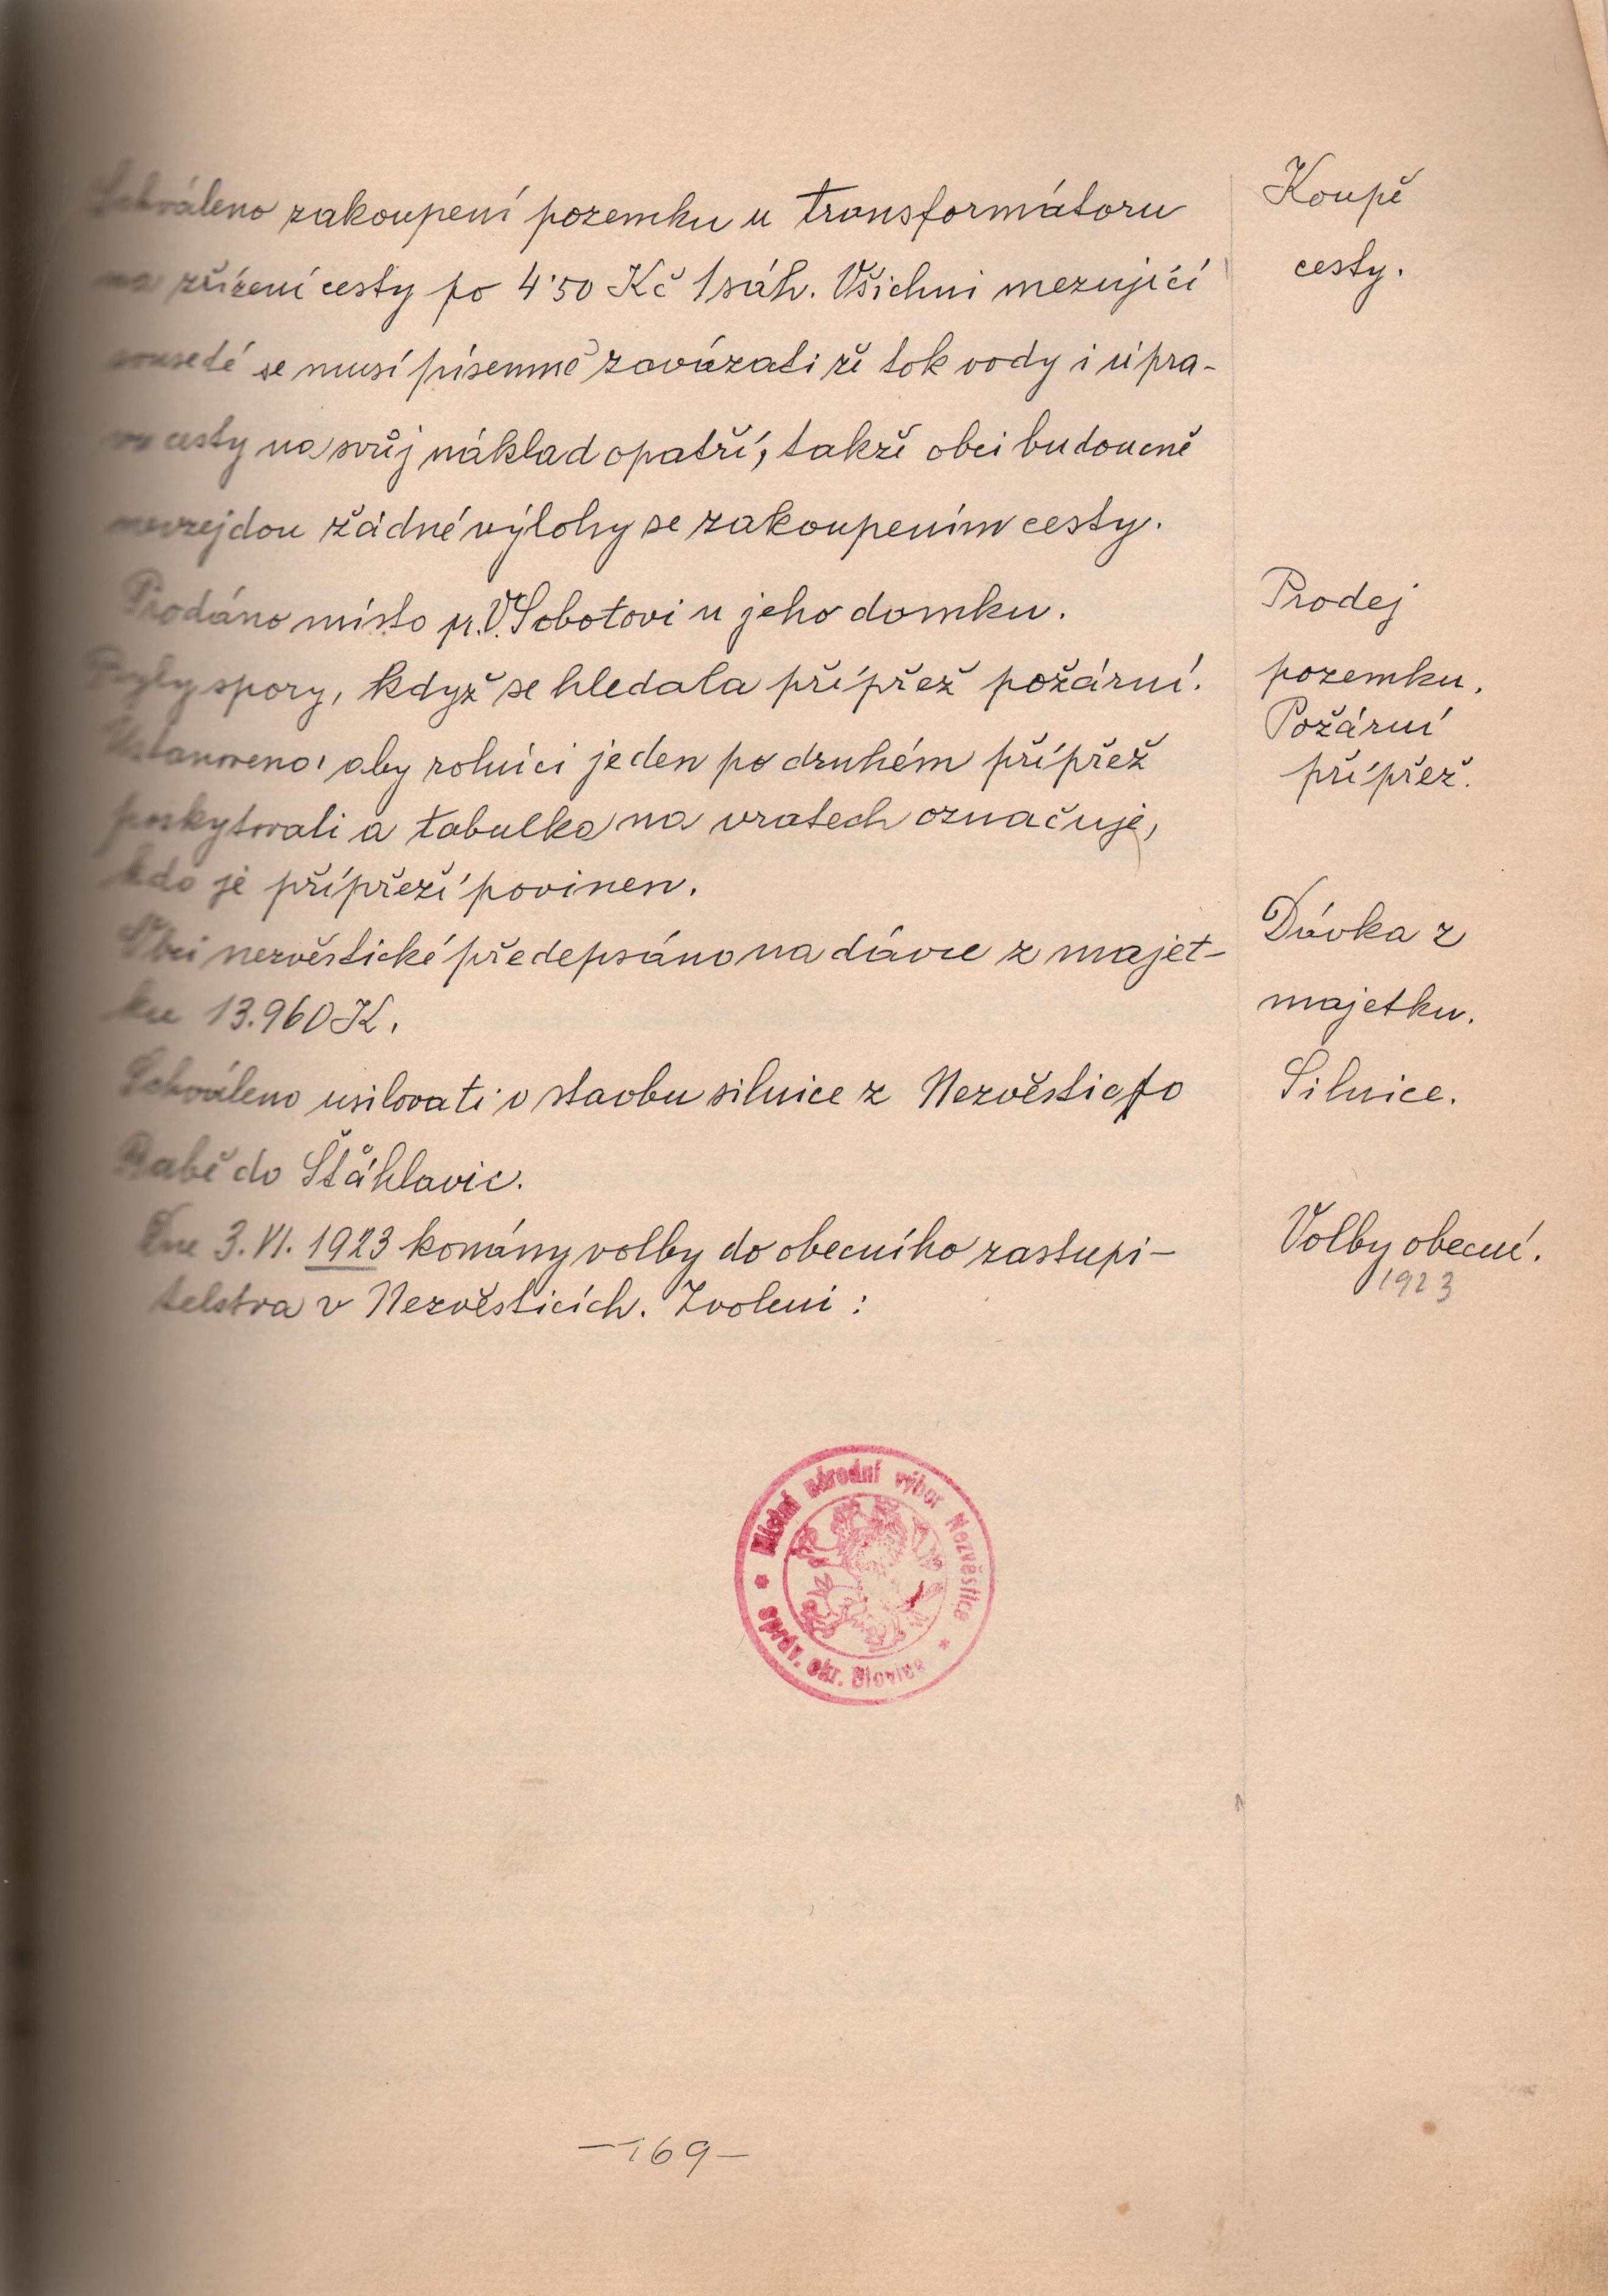 Schváleno zakoupení pozemku u transformátoru
na zřízení cesty po 4·50 Kč 1 sáh. Všichni mezující
sousedé se musí písemně zavázati že tok vody i úpra-
vu cesty na svůj náklad opatří, takže obci budoucně
nevzejdou žádné výlohy se zakoupením cesty.
Koupě
cesty.
Prodáno místo p. V. Sobotovi u jeho domku.
Prodej
pozemku.
Byly spory, když se hledala přípřež požární.
Ustanoveno, aby rolníci jeden po druhém přípřež
poskytovali a tabulka na vratech označuje,
kdo je přípřeží povinen.
Požární
přípřež.
Obci nezvěstické předepsáno na dávce z majet-
ku 13.960 K.
Dávka z
majetku.
Schváleno usilovati o stavbu silnice z Nezvěstic po
Babě do Šťáhlavic.
Silnice.
Dne 3. VI. 1923 konány volby do obecního zastupi-
telstva v Nezvěsticích. Zvoleni :
Volby obecní.
1923
Místní národní výbor Nezvěstice
* správ. okr. Blovice *
—169—